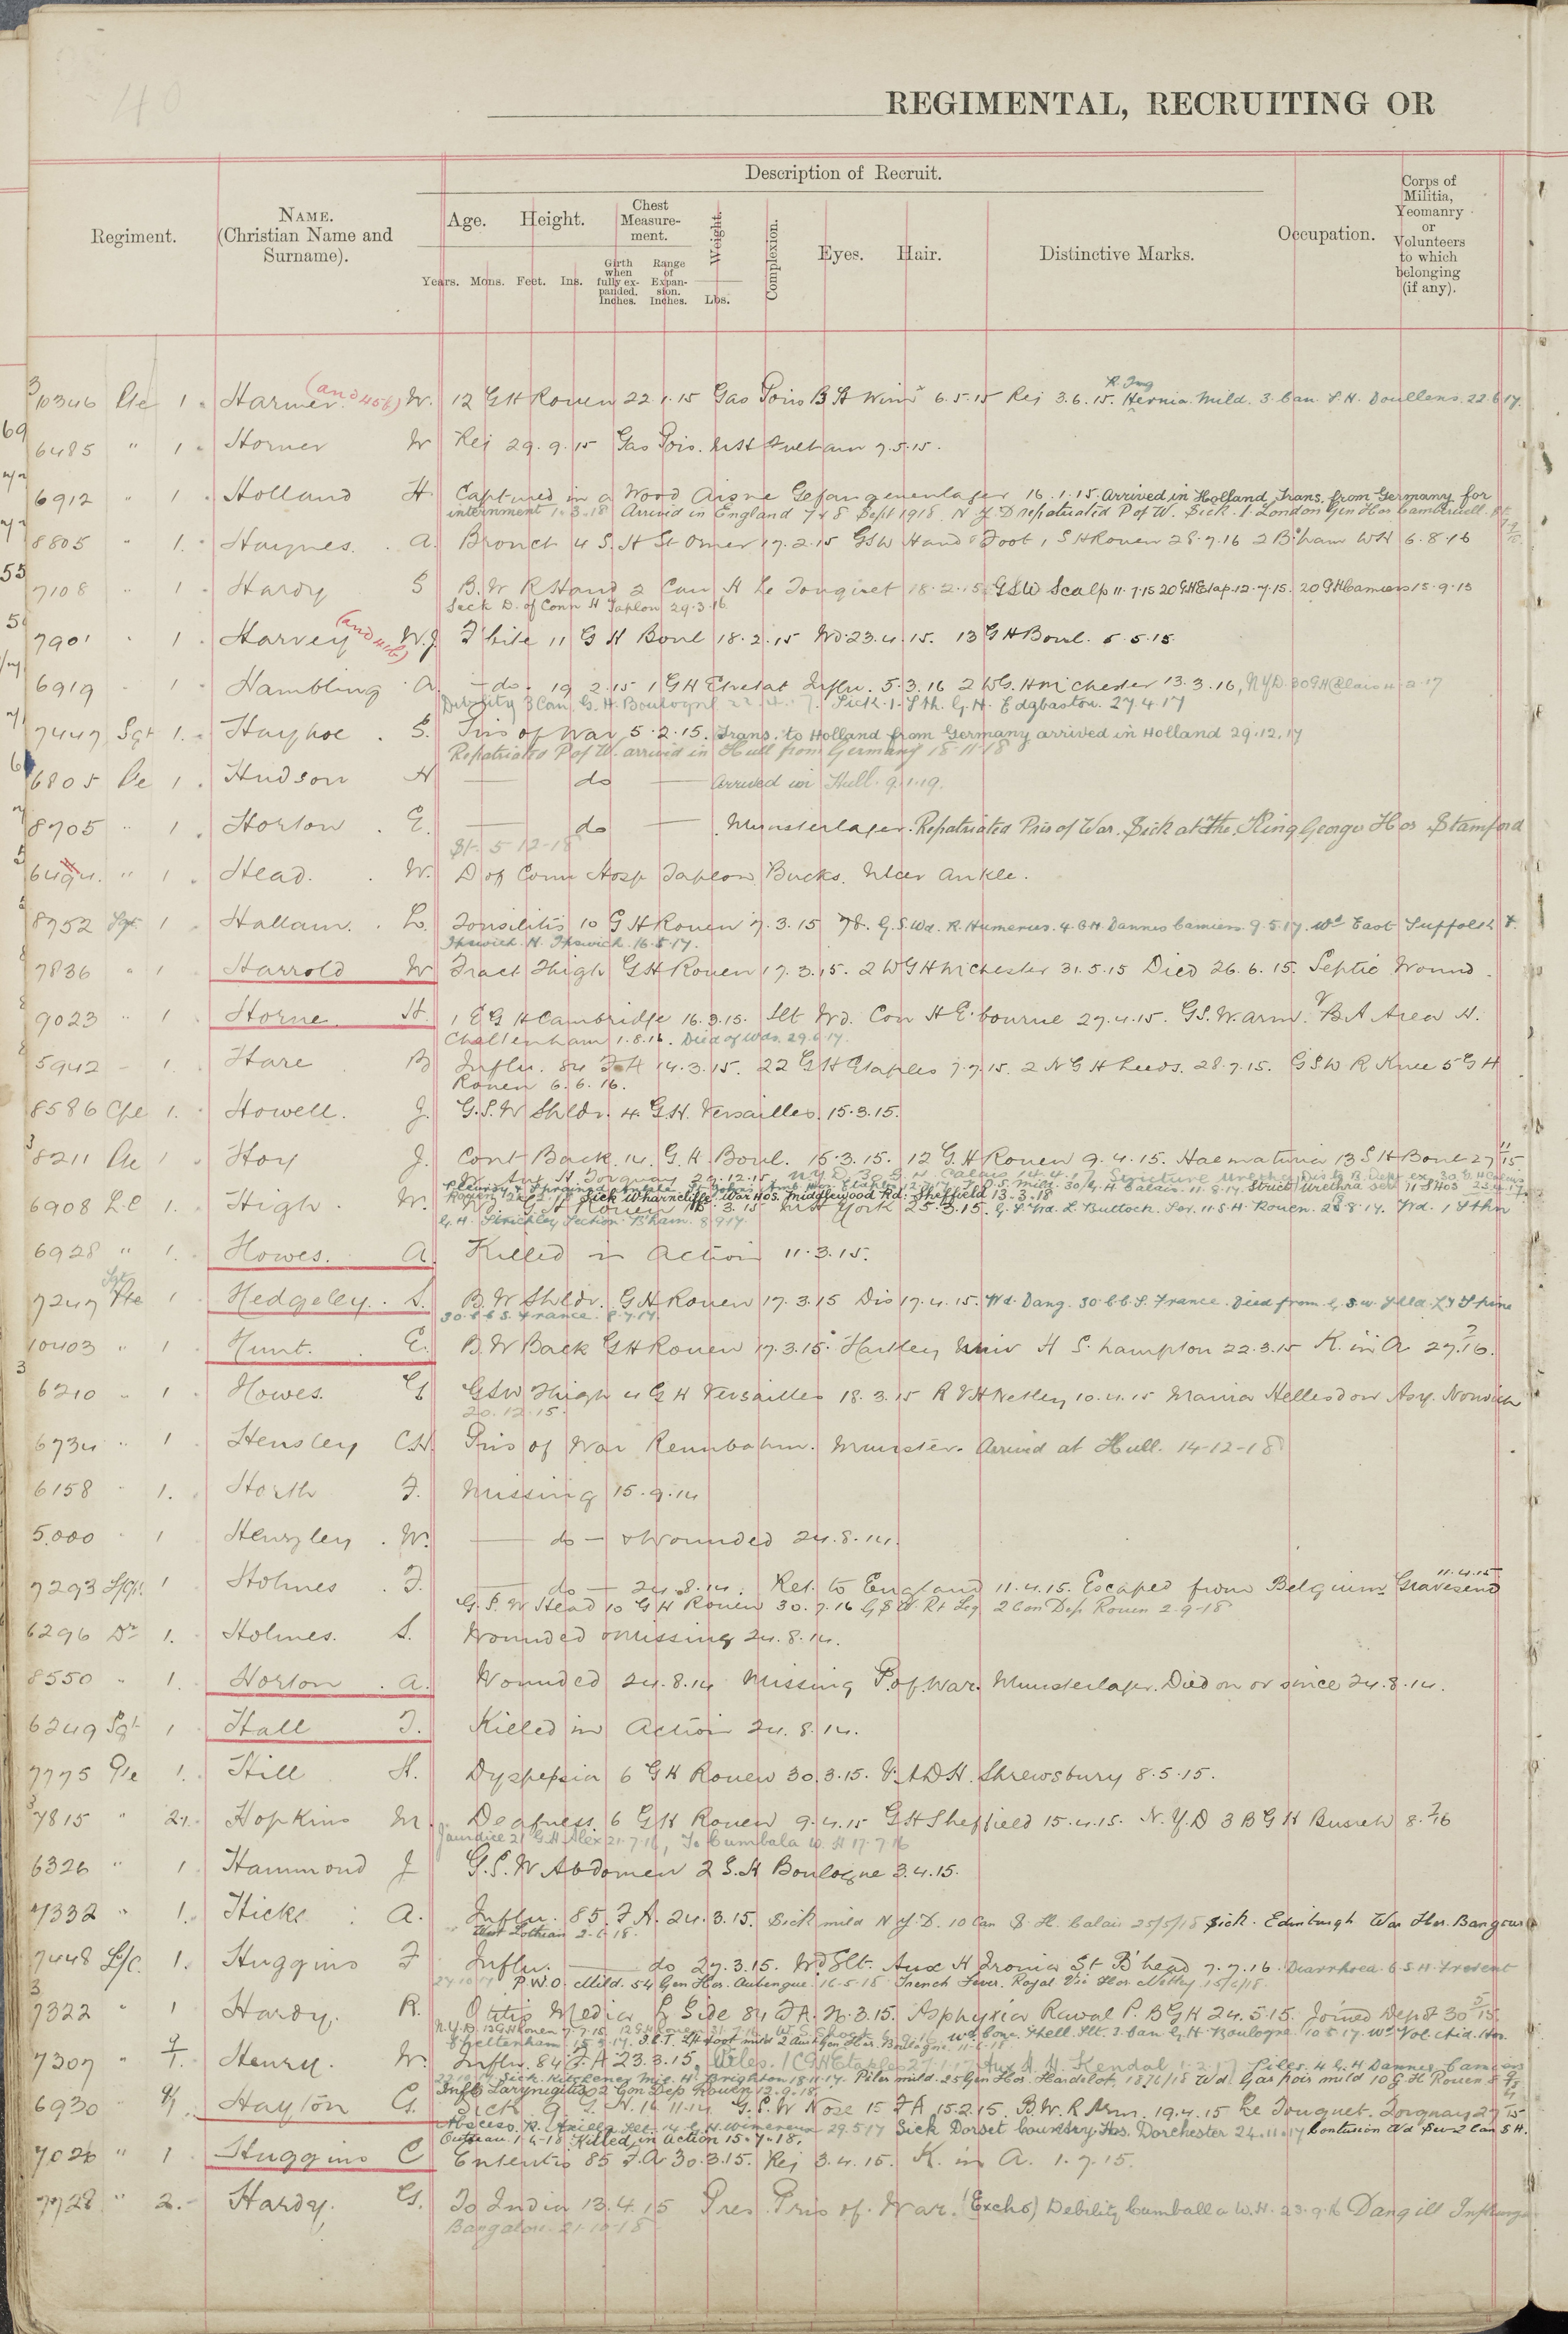 40
REGIMENTAL, RECRUITING OR
Regiment.
NAME.
(Christian Name and
Surname).
Description of Recruit.
Age. Height. Chest Measure-ment. Weight. Complexion. Eyes. Hair. Distinctive Marks.
Years. Mons. Feet. Ins. Girth when fully ex-panded. Inches. Range of Expan-sion. Inches. Lbs.
Occupation.
Corps of Militia, Yeomanry or Volunteers to which belonging (if any).
10346 Pte 1 Harmer (and 456) W. 12 GH Rouen 22.1.15 Gas Pois B H Wimx 6.5.15 Rej 3.6.15. R. Ing Hernia Mild. 3. Can. S.H. Doullens. 22.6.17.
6485 " 1 Horner W Rej 29.9.15 Gas Pois. MH Fulham 7.5.15.
6912 " 1 Holland H Captured in a Wood Aisne Gefangenenlager 16.1.15. Arrived in Holland Trans. from Germany for
internment 1.3.18 Arrived in England 7 & 8 Sept 1918. N.Y.D repatriated P of W. Sick. 1 London Gen Hos Camberwell
8805 " 1. Haynes. A. Bronch 4 S. H St Omer 17.2.15 GSW Hand & Foot 1 SH Rouen 28.7.16 2 B'ham WH 6.8.16
7108 " 1 Hardy S B.W R Hand 2 Can H Le Touquet 18.2.15 GSW Scalp 11.7.15 20 GH Etap. 12.7.15. 20 GH Camiers 15.9.15
Sick D. of Conn H Taplow 29.3.16
7901 " 1 Harvey (and 416) W.J. F'bite 11 G H Boul 18.2.15 Wd. 23.4.15. 13 GH Boul. 5.5.15
6919 " 1 Hambling A. — do. 19.2.15 1 GH Etretat Influ. 5.3.16 2 WG. H M'chester 13.3.16, NYD. 30 GH Calais
Debility 3 Can. G. H. Boulogne Sick. 1. Sth. G.H. Edgbaston. 27.4.17
7447 Sgt 1. Hayhoe S. Pris of War 5.2.15. Trans. to Holland from Germany arrived in Holland 29.12.17
Repatriated P of W. arrived in Hull from Germany 18-11-18
6805 Pte 1. Hudson H — do — Arrived in Hull. 9.1.19.
8705 " 1. Horton E. — do — Munsterlager. Repatriated Pris of War. Sick at the King George Hos Stamford
St. 5-12-18
6494. " 1 Head. W. D of Conn Hosp Taplow Bucks. Ulcer Ankle.
8752 Sgt 1 Hallam. L. Tonsilitis 10 G H Rouen 7.3.15 G.S.Wd. R. Humerus. 4. G H Dannes Camiers 9.5.17. Wd East Suffolk &
Ipswich. H. Ipswich. 16.5.17.
7836 " 1 Harrold W Fract Thigh GH Rouen 17.3.15. 2 WGH M'chester 31.5.15 Died 26.6.15. Septic Wound.
9023 " 1 Horne. H. 1 E G H Cambridge 16.3.15. Slt Wd. Con H E'bourne 27.4.15. G.S.W. arm. V B A Area H.
Cheltenham 1.8.16. Died of Wds. 29.6.17.
5942 " 1. Hare B Influ. 84 F.A 14.3.15. 22 GH Etaples 7.7.15. 2 N G H Leeds. 28.7.15. GSW R Knee 5 G H
Rouen 6.6.16.
8586 Cpl 1. Howell. J. G.S.W Shldr. 4. G.H. Versailles. 15.3.15.
8211 Pte 1 Hoy J. Cont Back. 14. G.H. Boul. 15.3.15. 12 G.H Rouen 9.4.15. Haematuria 13 S H Boul
Sick Wharncliffe War Hos. Middlewood Rd. Sheffield 13.3.18
6908 L.C 1. High. W. Wd. G.H Rouen 15.3.15 MH York 25.3.15. G.S.Wd. L. Buttock. Sev. 11. S.H. Rouen. 28.8.17. Wd. 1 Sthn
G.H. Stirchley Section B'ham. 8.9.17
6928 " 1. Howes. A. Killed in Action 11.3.15.
7247 Sgt Pte 1 Hedgeley. S. B.W Shldr. GH Rouen 17.3.15 Dis 17.4.15. Wd. Dang. 30. C.C.S. France. Died from G.S.W. Shld. & Spine
30. C.C.S. France. 8.7.17.
10403 " 1 Hunt. E. B.W Back GH Rouen 17.3.15. Hartley Univ H S'hampton 22.3.15 K. in A 27.7.16.
6210 " 1 Howes. G GSW Thigh 4 G H Versailles 18.3.15 R V H Netley 10.4.15 Mania Hellesdon Asy. Norwich
20.12.15.
6734 " 1 Hensley C.H. Pris of War Rennbahn. Munster. Arrived at Hull. 14-12-18
6158 " 1. Horth F. Missing 15.9.14
5.000 " 1 Henzley W. — do — & Wounded 24.8.14.
7293 L/Cpl. 1 Holmes F. — do — 24.8.14. Ret. to England 11.4.15. Escaped from Belgium. Gravesend 11.4.15.
G.S.W Head 10 G H Rouen 30.7.16 G S W. Rt Leg 2 Con Dep Rouen 2-9-18
6296 Dr 1. Holmes. S. Wounded & Missing 24.8.14.
8550 " 1. Horton A. Wounded 24.8.14 Missing P. of. War. Munsterlager. Died on or since 24.8.14.
6249 Sgt 1 Hall J. Killed in Action 24.8.14.
7775 Pte 1. Hill H. Dyspepsia 6 G H Rouen 30.3.15. V.A.D.H. Shrewsbury 8.5.15.
7815 " 2. Hopkins M. Deafness. 6 G H Rouen 9.4.15 GH Sheffield 15.4.15. N.Y.D 3 B G H Busreh 8.7.16
Jaundice 21 G.H. Alex 21.7.16, To Cumbala W. H 17.7.16
6326 " 1 Hammond J G.S.W Abdomen 2 S.H Boulogne 3.4.15.
7332 " 1. Hicks A. Influ. 85. F.A. 24.3.15. Sick mild N.Y.D. 10 Can S. H. Calais 25/5/18 Sick. Edinburgh War Hos. Bangour
West Lothian 2.6.18.
7448 L/C. 1. Huggins F Influ. — do 27.3.15. Wd Slt. Aux H St B'head 7.7.16. Diarrhoea 6 S.H. Frevent
P.U.O. Mild. 54 Gen Hos. Aubengue. 16.5.18 Trench Fever. Royal Vic Hos Netley
7322 " 1 Hardy. R. Otitis Media L Side 84 F.A. 3.15. Asphyxia Rawal P. B G H 24.5.15. Joined Depot
7307 " 1. Henry. W. Influ. 84 F.A 23.3.15. Piles. Etaples 27.1.17 Aux A.H. Kendal 1.2.17 Piles. 4 G.H Dannes Camiers
Sick. Kitchener Mil. H. Brighton 18.11.17. Piles mild. 25 Gen Hos. Hardelot. Wd. Gas pois mild 10 G H Rouen
Infl Laryngitis 2 Con Dep Rouen 12.9.18.
6930 " Hayton G. Sick 9. G. H. 16.11.14 G.S.W Nose 15 F A 15.2.15. B.W. R Arm. 19.4.15 Le Touquet. Torquay
Abscess R. Axilla Slt. 14 G. H. Wimereux 29.5.17 Sick Dorset County Hos. Dorchester 24.11.17 Contusion Wd Sev 2 Can S H.
Killed in action 15.7.18.
7026 " 1 Huggins C Enteritis 85 F.A 30.3.15. Rej 3.4.15. K. in A. 1.7.15.
7728 " 2. Hardy. G. To India 13.4.15 Pres Pris of War. (Exchd) Debility Cumballa W.H. 23.9.16 Dang ill Influenza
Bangalore 21-10-18